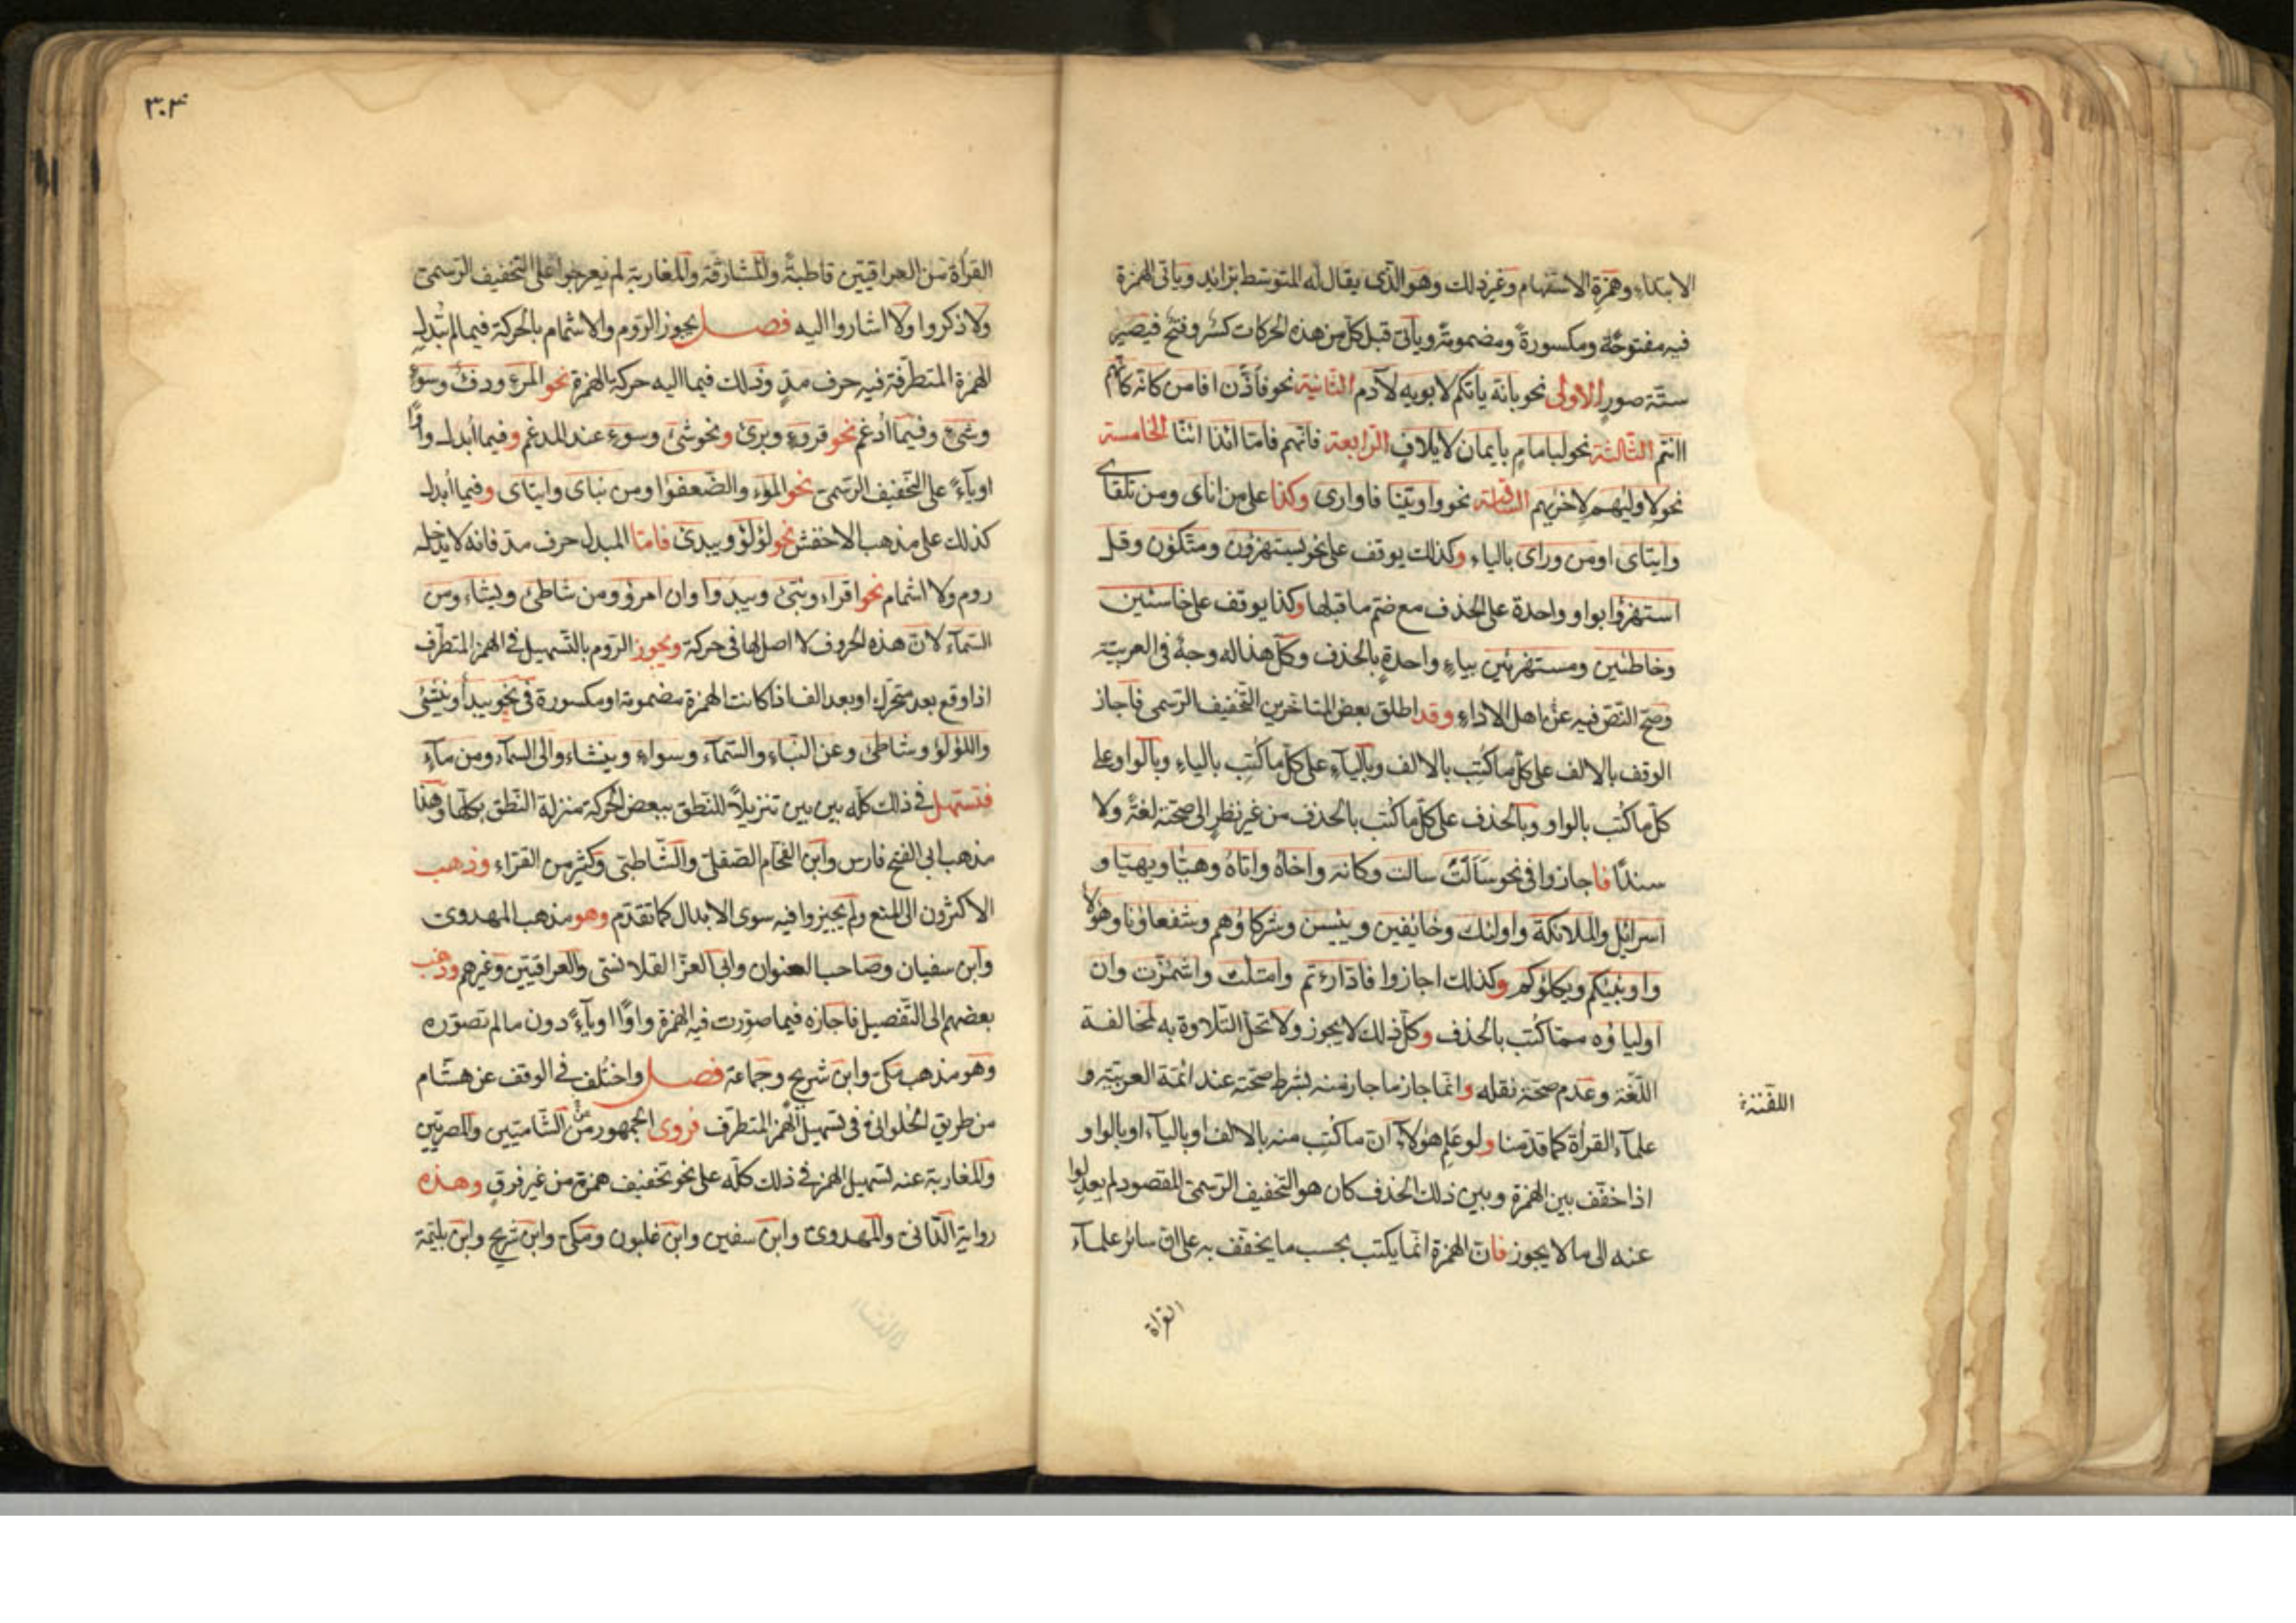 الابتداء وهمزة الاستفهام وغير ذلك وهو الذى يقال له المتوسط بزايد وياتى الهمزة
فيه مفتوحة ومكسورة ومضمومة وياتى قبل كل من هذه الحركات كسر وفتح فيصير
ستة صور الاولى نحو بانه ياتكم لابويه لآدم الثانية نحو فأذن افامن كانه كانهم
اانتم الثالثة نحو لبامام بايمان لايلاف الرابعة فانهم فامّا ائذا ائنا الخامسة
نحو لاوليهم لاخريهم السادسة نحو واوتينا فاوارى وكذا على من اناى ومن تلقاى
وايتاى اومن وراى بالياء وكذلك يوقف على نحو يستهزؤن ومتكؤن وقل
استهزؤا بواو واحدة على الحذف مع ضم ما قبلها وكذا يوقف على خاسئين
وخاطئين ومستهزئين بياء واحدة بالحذف وكل هذا له وجه فى العربية
وصح النص فيه عن اهل الاداء وقد اطلق بعض المتاخرين التخفيف الرسمى فاجاز
الوقف بالالف على كل ما كتب بالالف وبالياء على كل ما كتب بالياء وبالواو على
كل ما كتب بالواو وبالحذف على كل ما كتب بالحذف من غير نظر الى صحته لغة ولا
سندًا فاجازوا فى نحو سَاَلَتْ سالت وكانه واخاه واتاه وهيّا ويهيّا و
اسرائل والملائكة واولئك وخايفين وييسن وشركاؤهم وشفعاؤنا وهؤلا
واونبيكم ويكلؤكم وكذلك اجازوا فادارءتم وامتلت واشمئزت وان
اولياؤه ممّا كتب بالحذف وكل ذلك لا يجوز ولا تحل التلاوة به لمخالفة
اللغة وعدم صحة نقله وانما جاز ما جاز منه بشرط صحته عند ائمة العربية و
اللقنة
علمآء القرأة كما قدمنا ولو علم هؤلآء ان ما كتب منه بالالف او باليآء او بالواو
اذا خفف بين الهمزة وبين ذلك الحذف كان هو التخفيف الرسمى المقصود لم يعدلوا
عنه الى ما لا يجوز فان الهمزة انما يكتب بحسب ما يخفف به على ان سائر علمآء
القرأة
٣٠٣
القرأة من العراقيين قاطبةً والمشارقة والمغاربة لم يعرجوا على التخفيف الرسمى
ولا ذكروا ولا اشاروا اليه فصل يجوز الروم والاشمام بالحركة فيما لم تبدل
الهمزة المتطرفة فيه حرف مدٍ وذلك فيما اليه حركة الهمزة نحو المرء ودفء وسوء
وشىء وفيما أدغم نحو قروء وبرئ ونحو شئ وسوء عند المدغم وفيما أبدلـ واوًا
اوياءً على التخفيف الرسمى نحو الملؤ والضعفؤا ومن نباى وايتاى وفيما أبدلـ
كذلك على مذهب الاخفش نحو لؤلؤ ويبدئ فامّا المبدل حرف مد فانه لا يدخله
روم ولا اشمام نحو اقراء ونبئ ويبدوا وان امرؤ ومن شاطئ ويشاء ومن
السمآء لان هذه الحروف لا اصل لها فى حركة ويجوز الروم بالتسهيل فى الهمز المتطرف
اذا وقع بعد متحرك او بعد الف اذا كانت الهمزة مضمومة او مكسورة فى نحو يبدأ وينشئ
واللؤلؤ وشاطئ وعن النباء والسمآء وسواء ويشاء والى السمآء ومن مآء
فتسهل فى ذلك كله بين بين تنزيلاً للنطق ببعض الحركة منزلة النطق بكلها وهذا
مذهب ابى الفتح فارس وابن الفحام الصقلى والشاطبى وكثير من القراء وذهب
الاكثرون الى المنع ولم يجيزوا فيه سوى الابدال كما تقدم وهو مذهب المهدوى
وابن سفيان وصاحب العنوان وابى العز القلانسى والعراقيين وغيرهم وذهب
بعضهم الى التفصيل فاجازه فيما صورت فيه الهمزة واوًا اوياءً دون ما لم تصوّره
وهو مذهب مكى وابن شريح وجماعة فصل واختلف فى الوقف عن هشام
من طريق الحلوانى فى تسهيل الهمز المتطرف فروى الجمهور من الشاميين والمصريين
والمغاربة عنه تسهيل الهمز فى ذلك كله على نحو تخفيف همزة من غير فرق وهذه
رواية الدانى والمهدوى وابن سفين وابن غلبون ومكى وابن شريح وابن بليمة